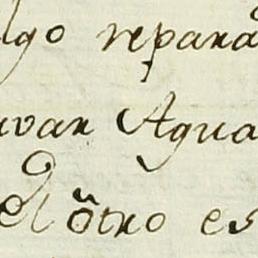 lgo repara
uvan Agua
el otro es